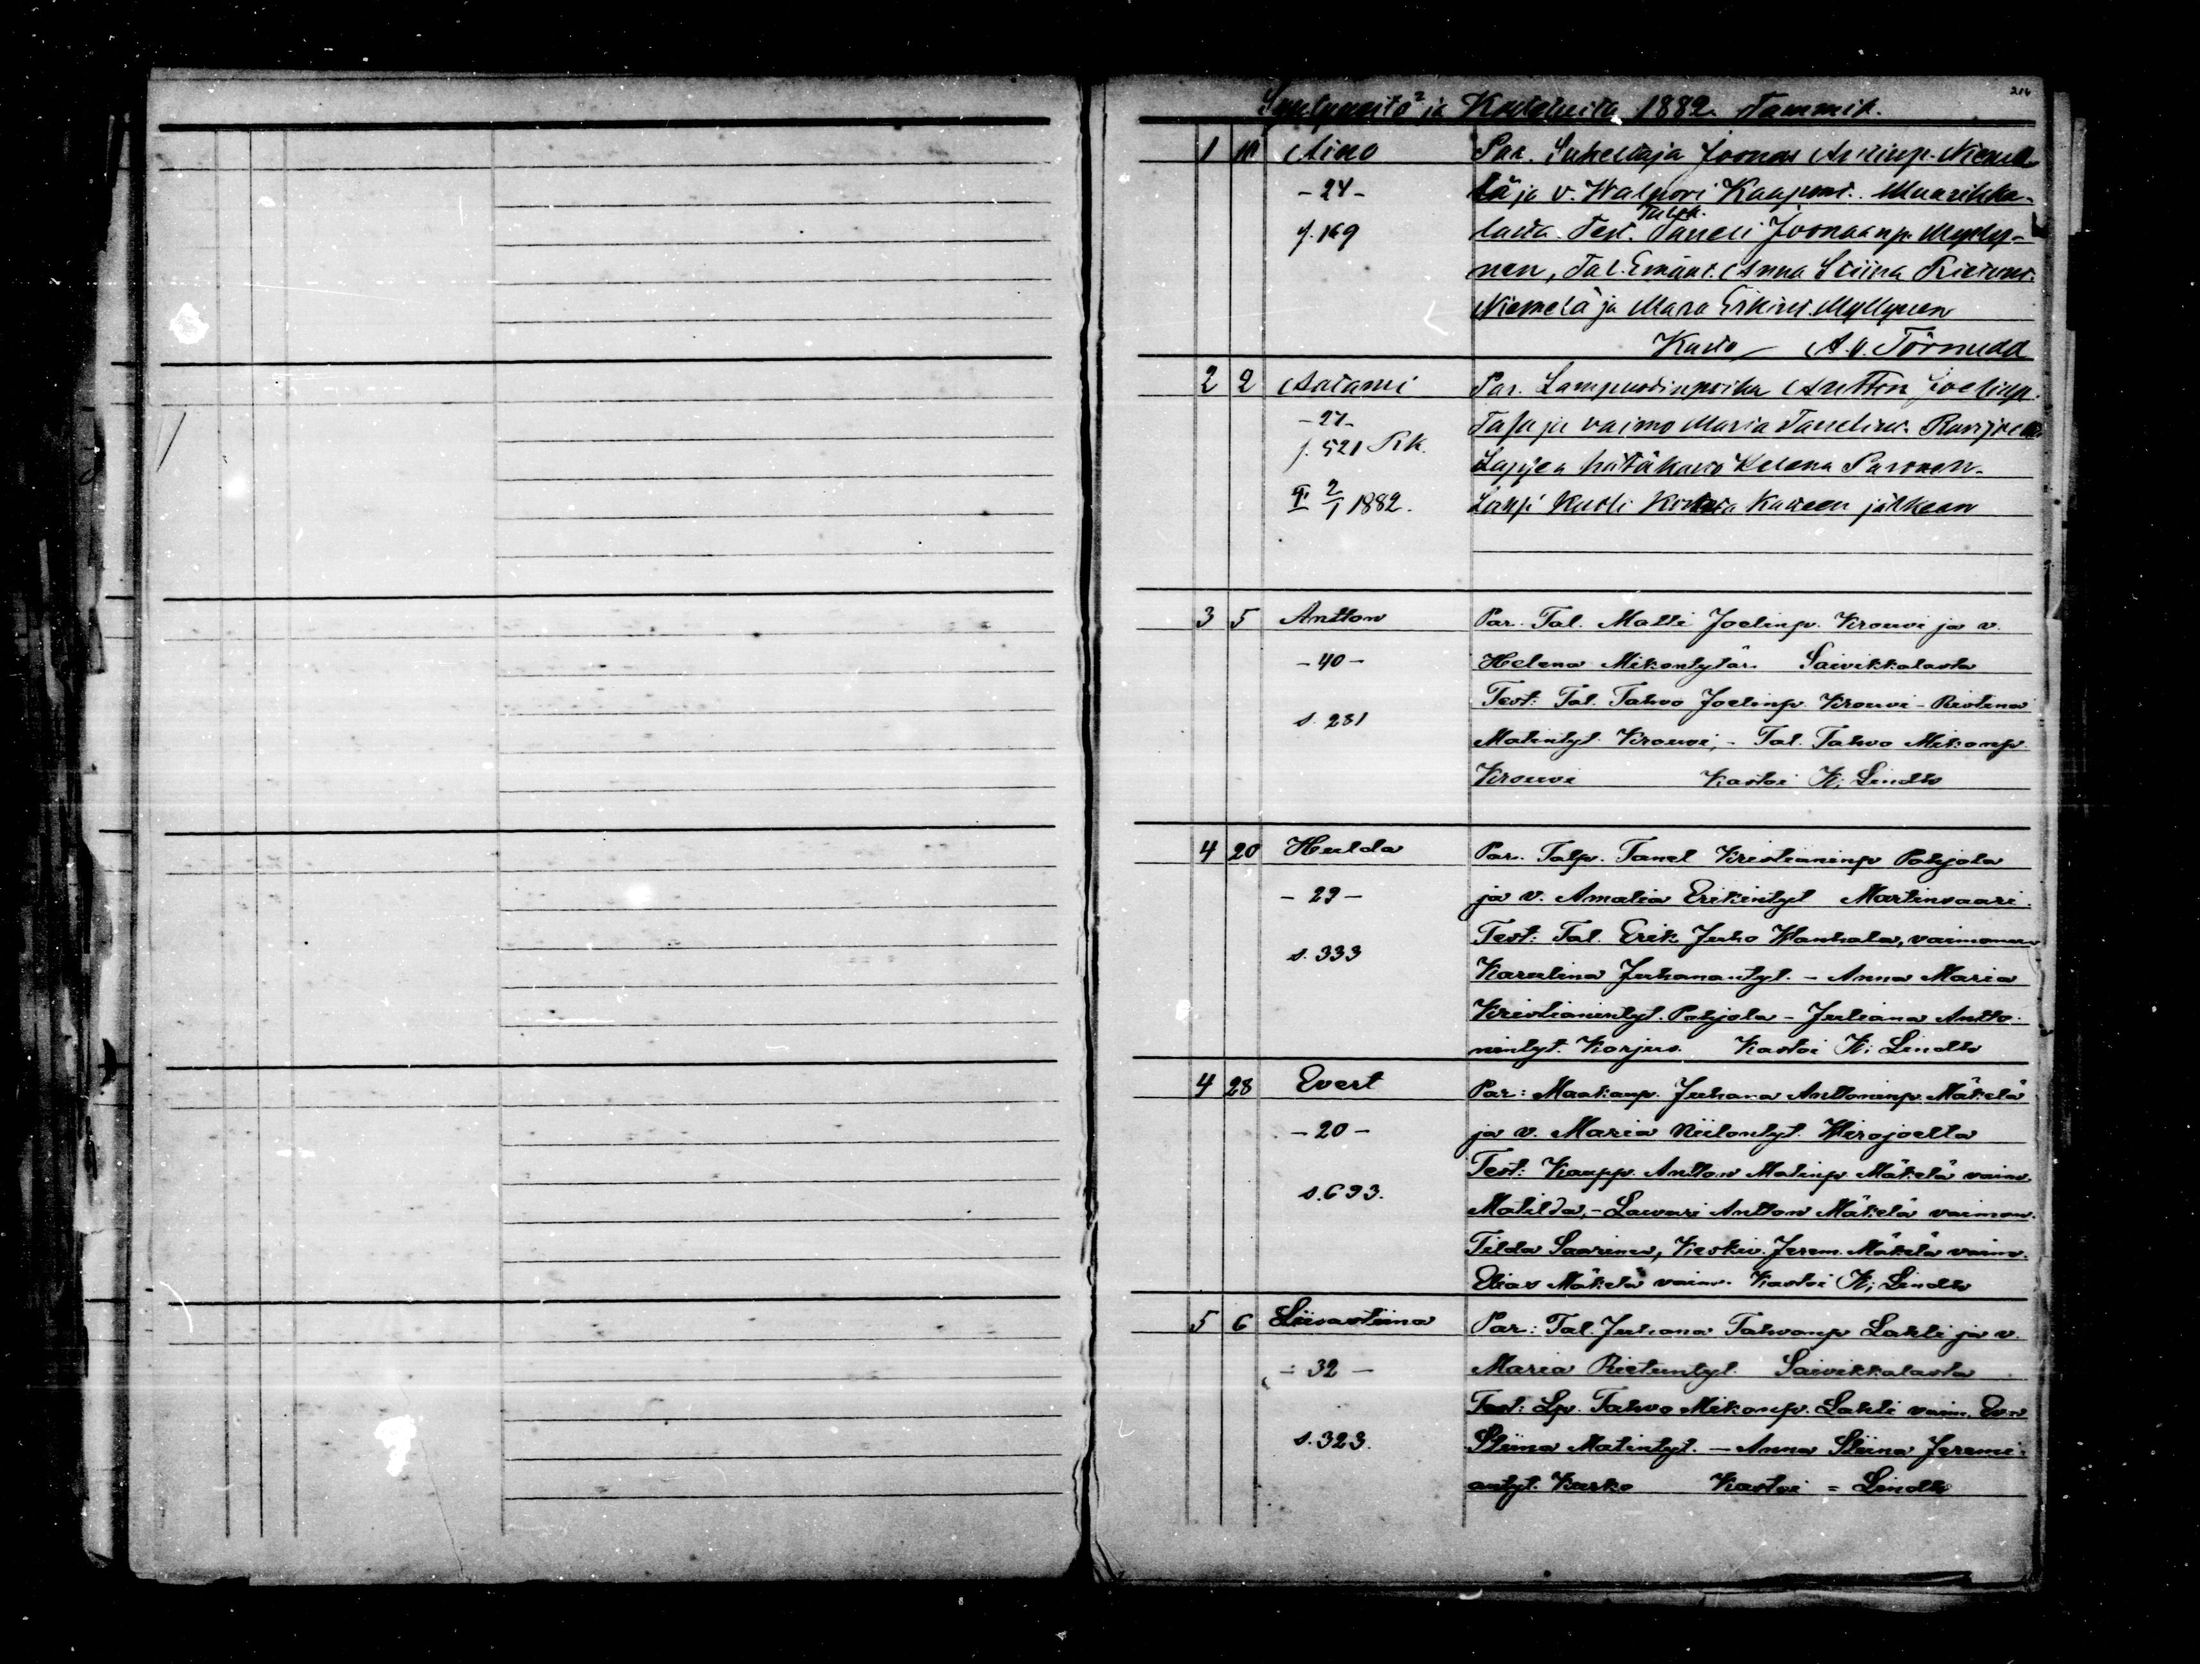 216
Syntyneitä ja Kastetuita 1882 Tammik.
1 Aino Par. Suhettaja Joonas Antinp. Nieme
- 24 - lä ja v. Walpori Kaapont. Muurikka-
f. 169 lasta. Test. Talok. Taneli Joonaanp. Mylly-
nen, Tal. Emänt. Anna Stiina Rietunt.
Niemelä ja Mara Erkint. Myllynen
Kasto A. V. Törnudd
2 2 Aatami Par. Lampuodinpoika Antton Joelinp.
- 27 - ja vaimo Maria Tanelint.
f. 521 Rk. Lapsen hätäkasto Helena Paronen.
2/1 1882. Lapsi kuoli kohta kasteen jälkeen
3 5 Antton Par. Tal. Matti Joelinp. Krouvi ja v.
- 40 - Helena Mikontytär. Saivikkalasta
Test: Tal. Tahvo Joelinp. Krouvi - Ristina
s. 231 Matintyt. Krouvi, - Tal. Tahvo Mikonp.
Krouvi Kastoi K; Lindh
4 20 Hulda Par. Talp. Tanel Kristianinp Pohjola
- 29 - ja v. Amalia Erikintyt Martinsaari.
Test: Tal. Erik Juho Wanhala, vaimonsa
s. 333 Karulina Juhanantyt. - Anna Maria
Kristianintyt. Pohjola - Juliana Antto-
nintyt. Korjus. Kastoi K; Lindh
4 28 Evert Par: Maakaup. Juhana Anttoninp. Mäkelä
- 20 - ja v. Maria Niilontyt. Wirojoelta
Test: Kaupp. Antton Matinp Mäkelä vaim.
s. 693. Matilda, - Lawari Antton Mäkelä vaimon.
Tilda Saarinen, Keskiv. Jerem. Mäkelä vaim.
Elias Mäkelä vaim. Kastoi K; Lindh
5 6 Liisastiina Par: Tal. Juhana Tahvonp Lahti ja v.
- 32 - Maria Rietuntyt. Saivikkalasta
Test: Lp. Tahvo Mikonp. Lahti vaim. Eva
s. 323. Stiina Matintyt. - Anna Stiina Jeremi-
antyt. Kurko Kastoi = Lindh